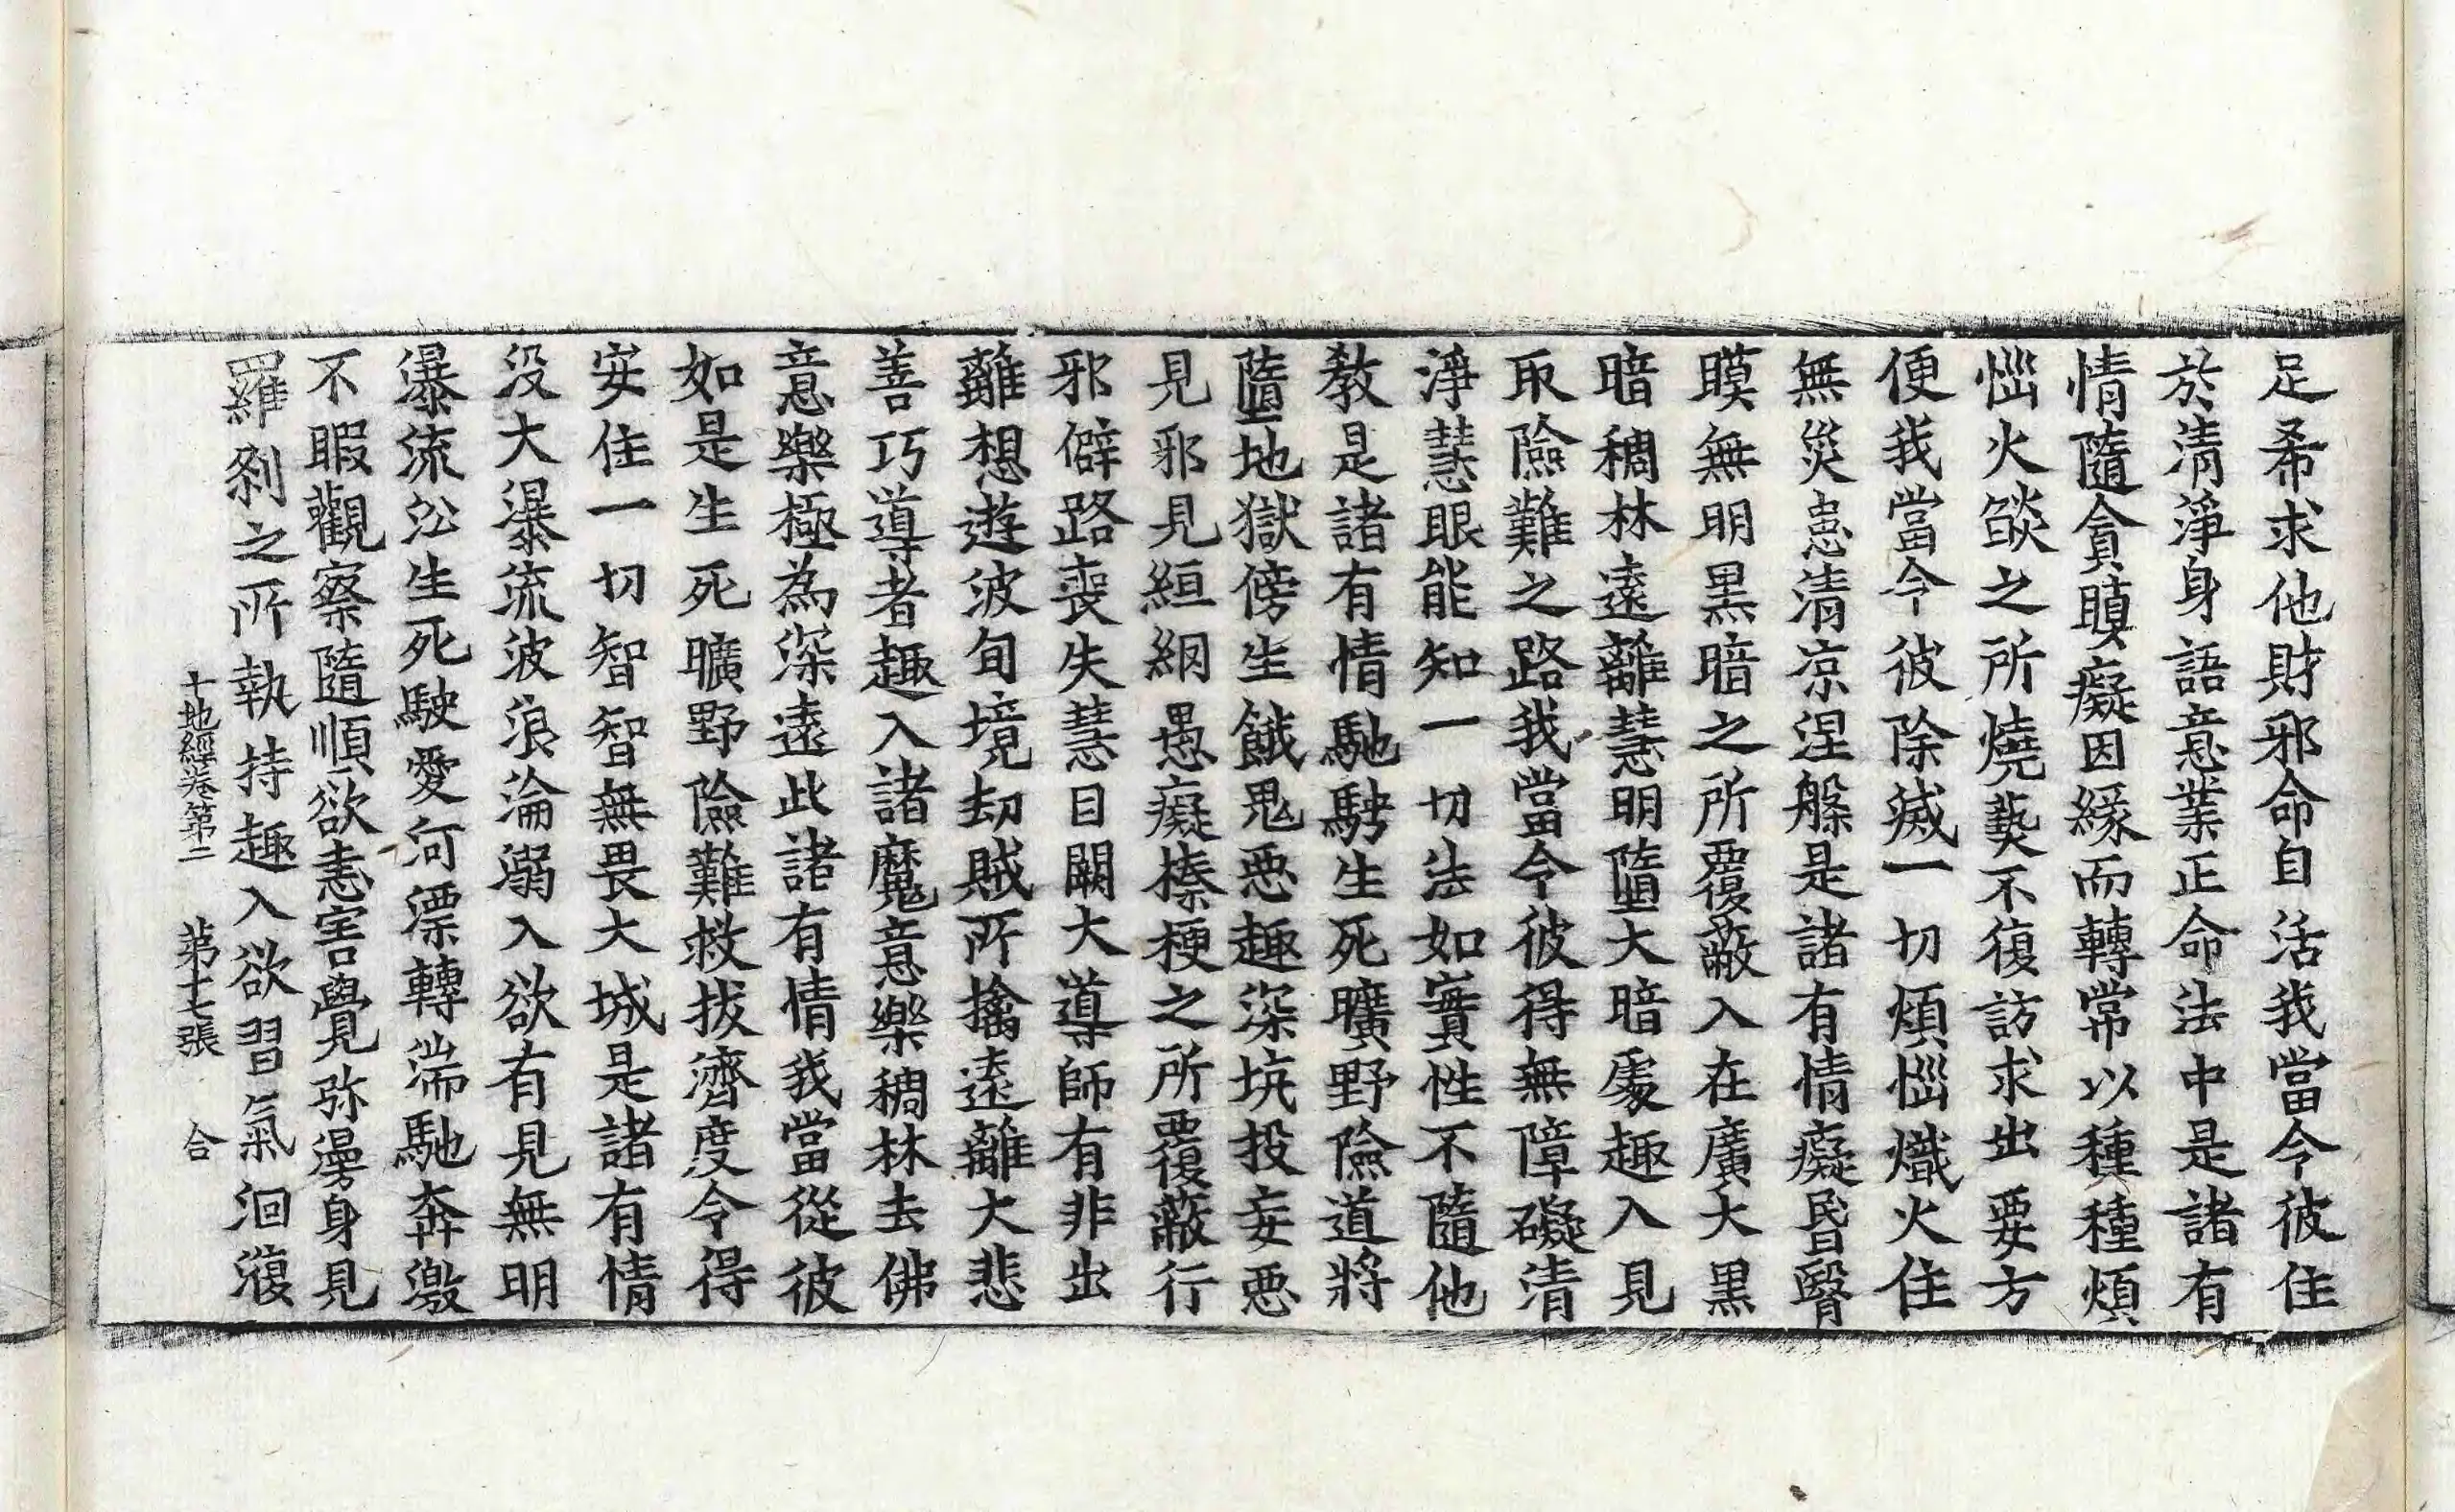 足希求他財邪命自活我當令彼住
於清淨身語意業正命法中是諸有
情隨貪瞋癡因緣而轉常以種種煩
惱火燄之所燒爇不復訪求出要方
便我當令彼除滅一切煩惱熾火住
無災患清涼涅槃是諸有情癡昏瞖
瞙無明黑暗之所覆蔽入在廣大黑
暗稠林遠離慧明墮大暗處趣入見
取險難之路我當令彼得無障礙清
淨慧眼能知一切法如實性不隨他
教是諸有情馳騁生死曠野險道將
墮地獄傍生餓鬼惡趣深坑投妄惡
見邪見絙網愚癡榛梗之所覆蔽行
邪僻路喪失慧目闕大導師有非出
離想遊波旬境劫賊所擒遠離大悲
善巧導者趣入諸魔意樂稠林去佛
意樂極為深遠此諸有情我當從彼
如是生死曠野險難救拔濟度令得
安住一切智智無畏大城是諸有情
沒大瀑流波浪淪溺入欲有見無明
瀑流㳂生死駛愛河漂轉湍馳奔激
不暇觀察隨順欲恚害覺弥漫身見
羅剎之所執持趣入欲習氣洄澓
十地經卷第二　第十七張　合